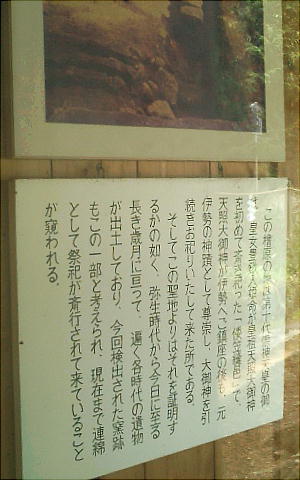 この檜原の
を初めて
天照大御神が伊勢へご鎮座の後も、元
伊勢の神蹟として尊崇し、大御神を引
続きお祀りいたして来た所である。
そしてこの聖地よりはそれを証明す
るかの如く、弥生時代から今日に至る
長き歳月に亘って、遍く各時代の遺物
が出土しており、今回検出された窯跡
もこの一部と考えられ、現在まで連綿
として祭祀が斎行されて来ていること
が窺われる。